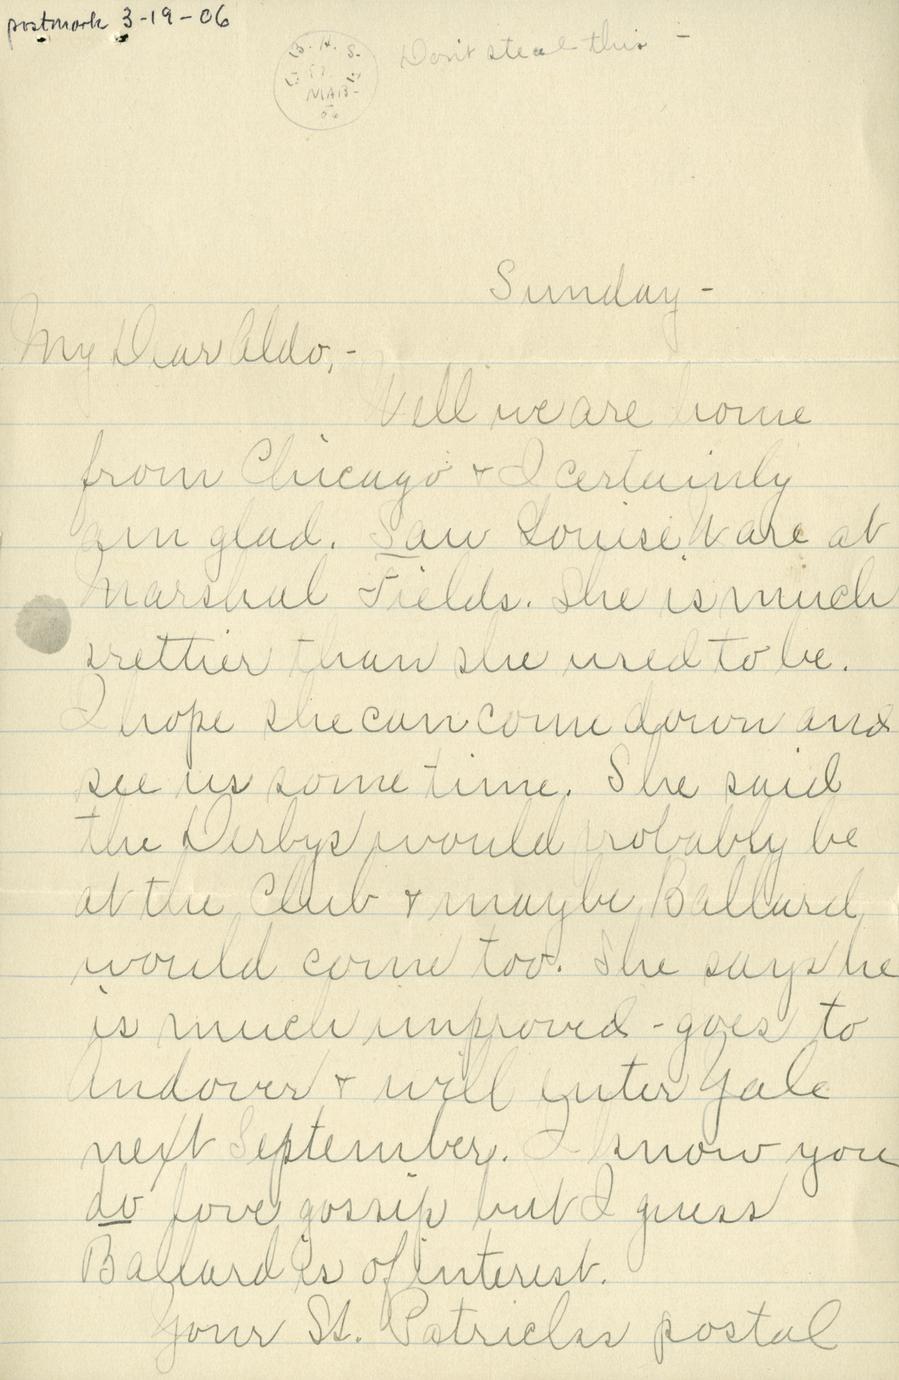 postmark 3-19-06
Don't steal this -
B. H. S.
MAR-
06
Sunday -
My Dear Aldo,-
Well we are home
from Chicago & I certainly
am glad. Saw Louise Ware at
Marshal Fields. She is much
prettier than she used to be.
I hope she can come down and
see us some time. She said
the Derbys would probably be
at the Club & maybe Ballard
would come too. She says he
is much improved - goes to
Andover & will enter Yale
next September. I know you
do love gossip but I guess
Ballard is of interest.
Your St. Patricks postal